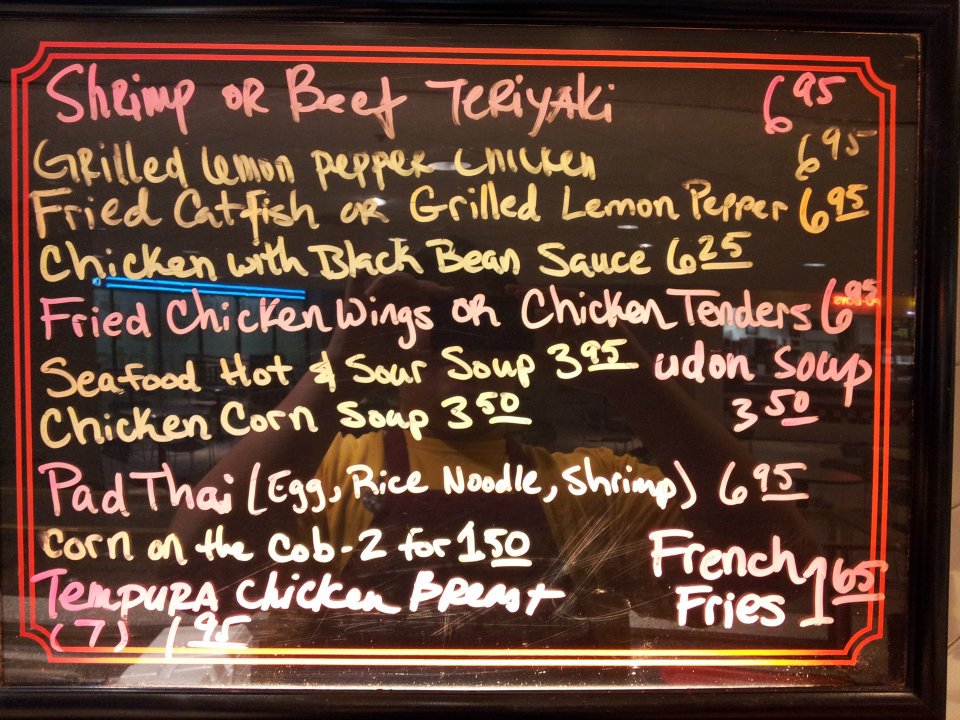 Shrimp or Beef Teriyaki 6 95
Grilled lemon pepper chicken 6 95
Fried Catfish or Grilled Lemon Pepper 6 95
Chicken with Black Bean Sauce 6 25
Fried Chicken Wings or Chicken Tenders 6 95
Seafood Hot & Sour Soup 3 95
udon Soup
Chicken Corn Soup 3 50
3 50
Pad Thai (Egg, Rice Noodle, Shrimp) 6 95
corn on the cob-2 for 1 50
French
Fries 1 65
Tempura chicken Breast
(7) 1 95